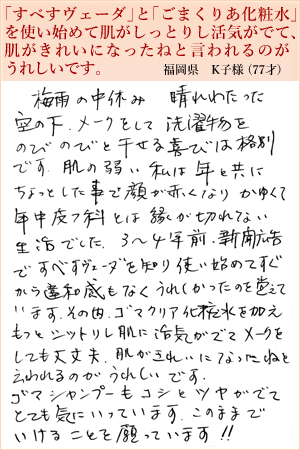 「すべすヴェーダ」と「ごまくりあ化粧水」
を使い始めて肌がしっとりし活気がでて、
肌がきれいになったねと言われるのが
うれしいです。
福岡県 K子様（77才）
梅雨の中休み 晴れわたった
空の下、メークをして洗濯物を
のびのびと干せる喜びは格別
です。肌の弱い私は年と共に
ちょっとした事で顔が赤くなりかゆくて
年中皮フ科とは縁が切れない
生活でした。3〜4年前、新聞広告
ですべすヴェーダを知り使い始めてすぐ
から違和感もなくうれしかったのを覚えて
います。その内、ゴマクリア化粧水を加え
もっとシットリし肌に活気がでてメークを
しても大丈夫、肌がきれいになったねと
云われるのがうれしいです。
ゴマシャンプーもコシとツヤがでて
とても気にいっています。このままで
いけることを願っています!!